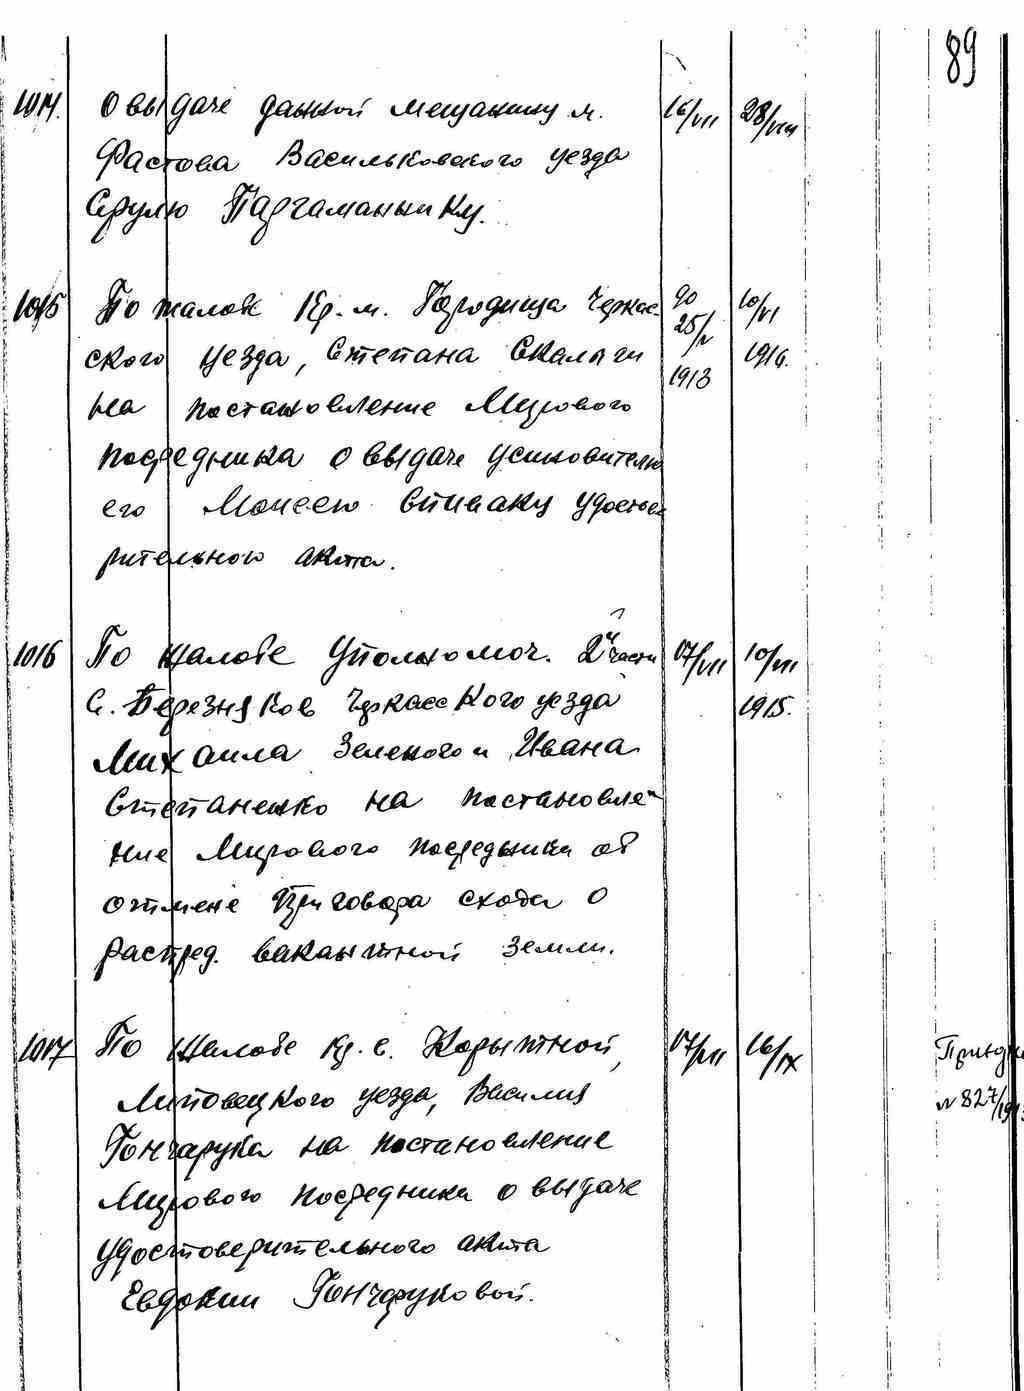 89
1014. О выдаче данной мещанину м. 16/VII 28/VIII
Фастова Васильковского уезда
Срулю Паргаманнику.
1015 По жалобе Кр. м. Городища Черкас- 90 10/VI
ского уезда, Степана Скалыги 25/V 1914.
на постановление Мирового 1913
посредника о выдаче усыновителю
его Моисею Спиваку удостове
рительного акта.
1016 По жалобе Уполномоч. 2й части 17/VII 10/VII
С. Березняков Черкасского уезда 1915.
Михаила Зеленого и Ивана
Степаненко на постановле-
ние Мирового посредника об
отмене Приговора схода о
распред. вакантной земли.
1017 По жалобе кр. с. Корытной, 17/VII 16/IX
Липовецкого уезда, Василия
№ 827/191
Гончарука на постановление
Мирового посредника о выдаче
удостоверительного акта
Евдокии Гончаруковой.